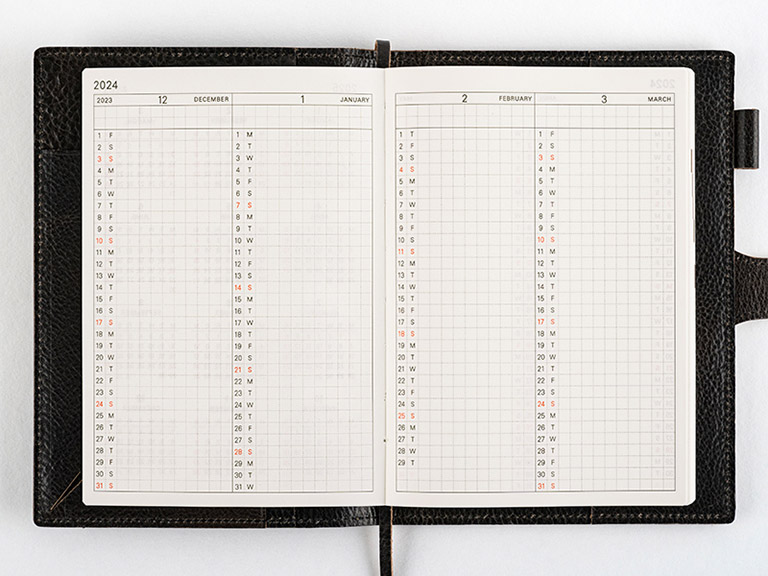 2024
2023 12 DECEMBER
1 F
2 S
3 S
4 M
5 T
6 W
7 T
8 F
9 S
10 S
11 M
12 T
13 W
14 T
15 F
16 S
17 S
18 M
19 T
20 W
21 T
22 F
23 S
24 S
25 M
26 T
27 W
28 T
29 F
30 S
31 S
1 JANUARY
1 M
2 T
3 W
4 T
5 F
6 S
7 S
8 M
9 T
10 W
11 T
12 F
13 S
14 S
15 M
16 T
17 W
18 T
19 F
20 S
21 S
22 M
23 T
24 W
25 T
26 F
27 S
28 S
29 M
30 T
31 W
2 FEBRUARY
1 T
2 F
3 S
4 S
5 M
6 T
7 W
8 T
9 F
10 S
11 S
12 M
13 T
14 W
15 T
16 F
17 S
18 S
19 M
20 T
21 W
22 T
23 F
24 S
25 S
26 M
27 T
28 W
29 T
3 MARCH
1 F
2 S
3 S
4 M
5 T
6 W
7 T
8 F
9 S
10 S
11 M
12 T
13 W
14 T
15 F
16 S
17 S
18 M
19 T
20 W
21 T
22 F
23 S
24 S
25 M
26 T
27 W
28 T
29 F
30 S
31 S